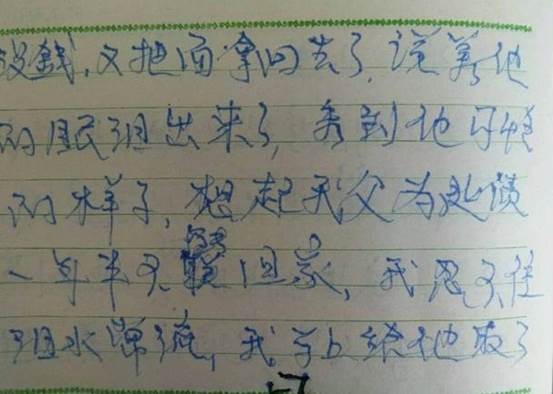 没錢,又把面拿回去了,说着他
的眼泪出来了,看到他可怜
的样子,想起我父为
一年半不 回家,我忍不住
泪水 流,我马上给他取了